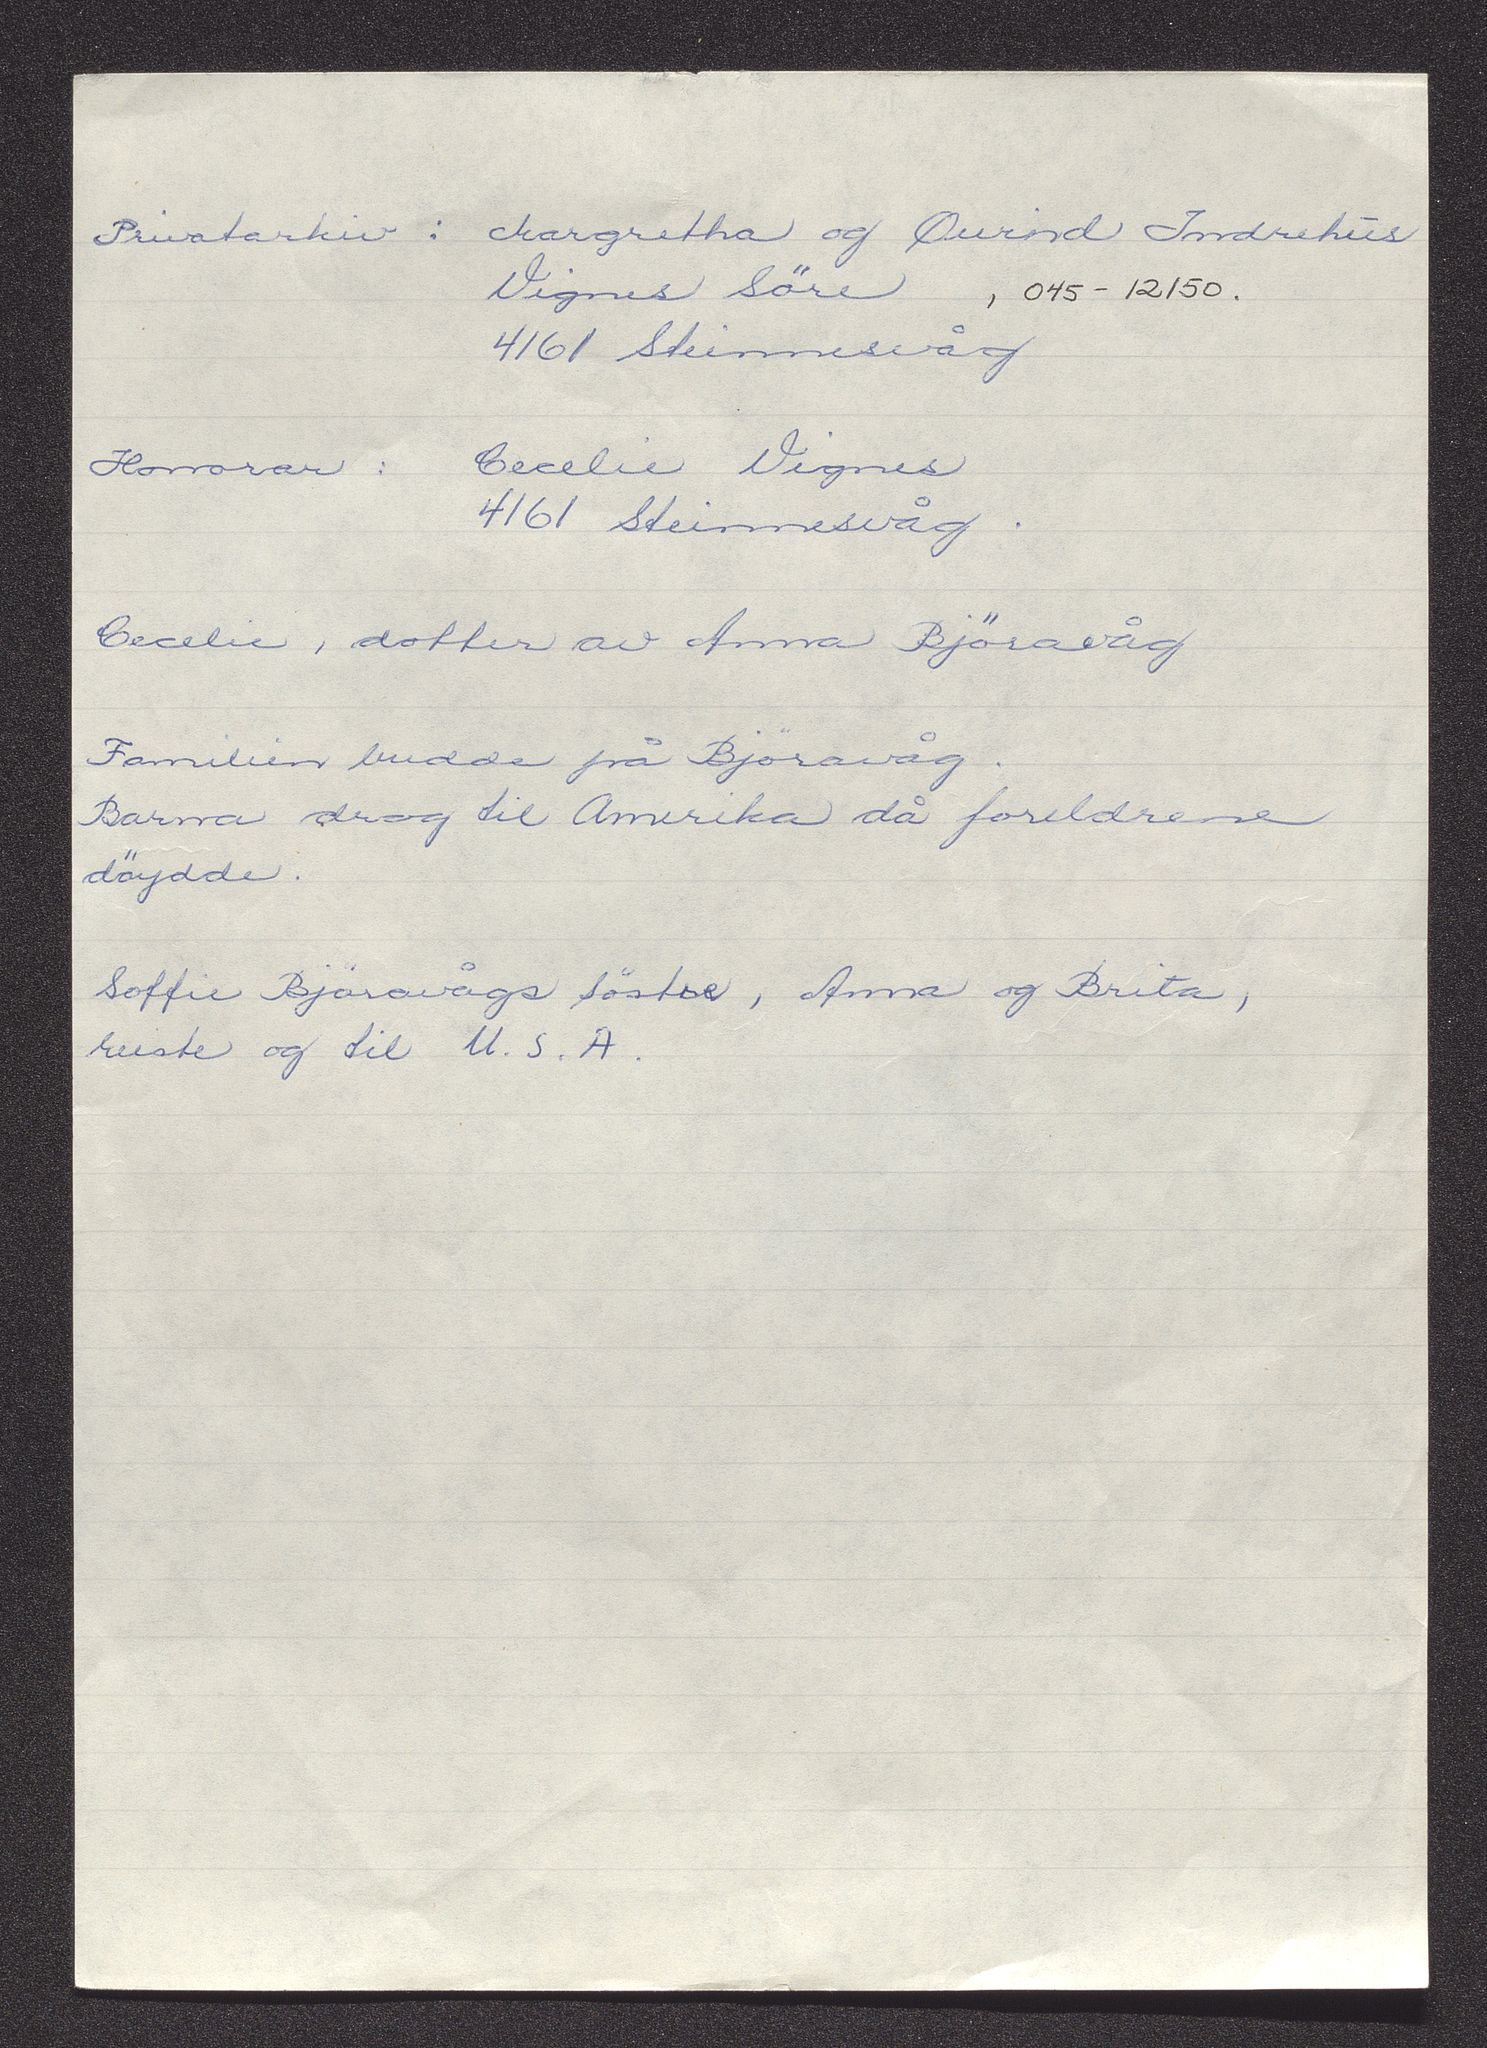 Privatarkiv : Margretha og Øvind Indrehus
Vignes Söre , 045-12150.
4161 Steinnesvåg
Honorar : Cecelie Vignes
4161 Steinnesvåg .
Cecelie , dotter av Anna Björavåg
Familien budde på Björavåg .
Barna drog til Amerika då foreldrene
döydde .
Soffie Björavågs söstre , Anna og Brita ,
reiste og til U. S. A .